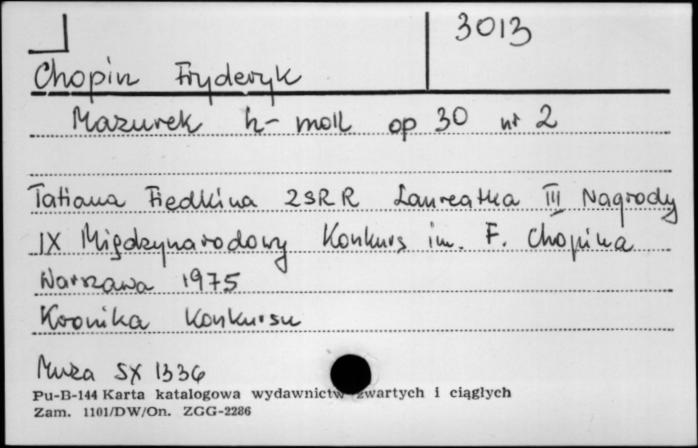 3013
Chopin Fryderyk
Mazurek h-moll op 30 nr 2
Tatiana Fiedkina ZSRR Laureatka III Nagrody
IX Międzynarodowy Konkurs im. F. Chopina
Warszawa 1975
Kronika Konkursu
Muza SX 1336
Pu-B-144 Karta katalogowa wydawnictw zwartych i ciąglych
Zam. 1101/DW/On. ZGG-2286